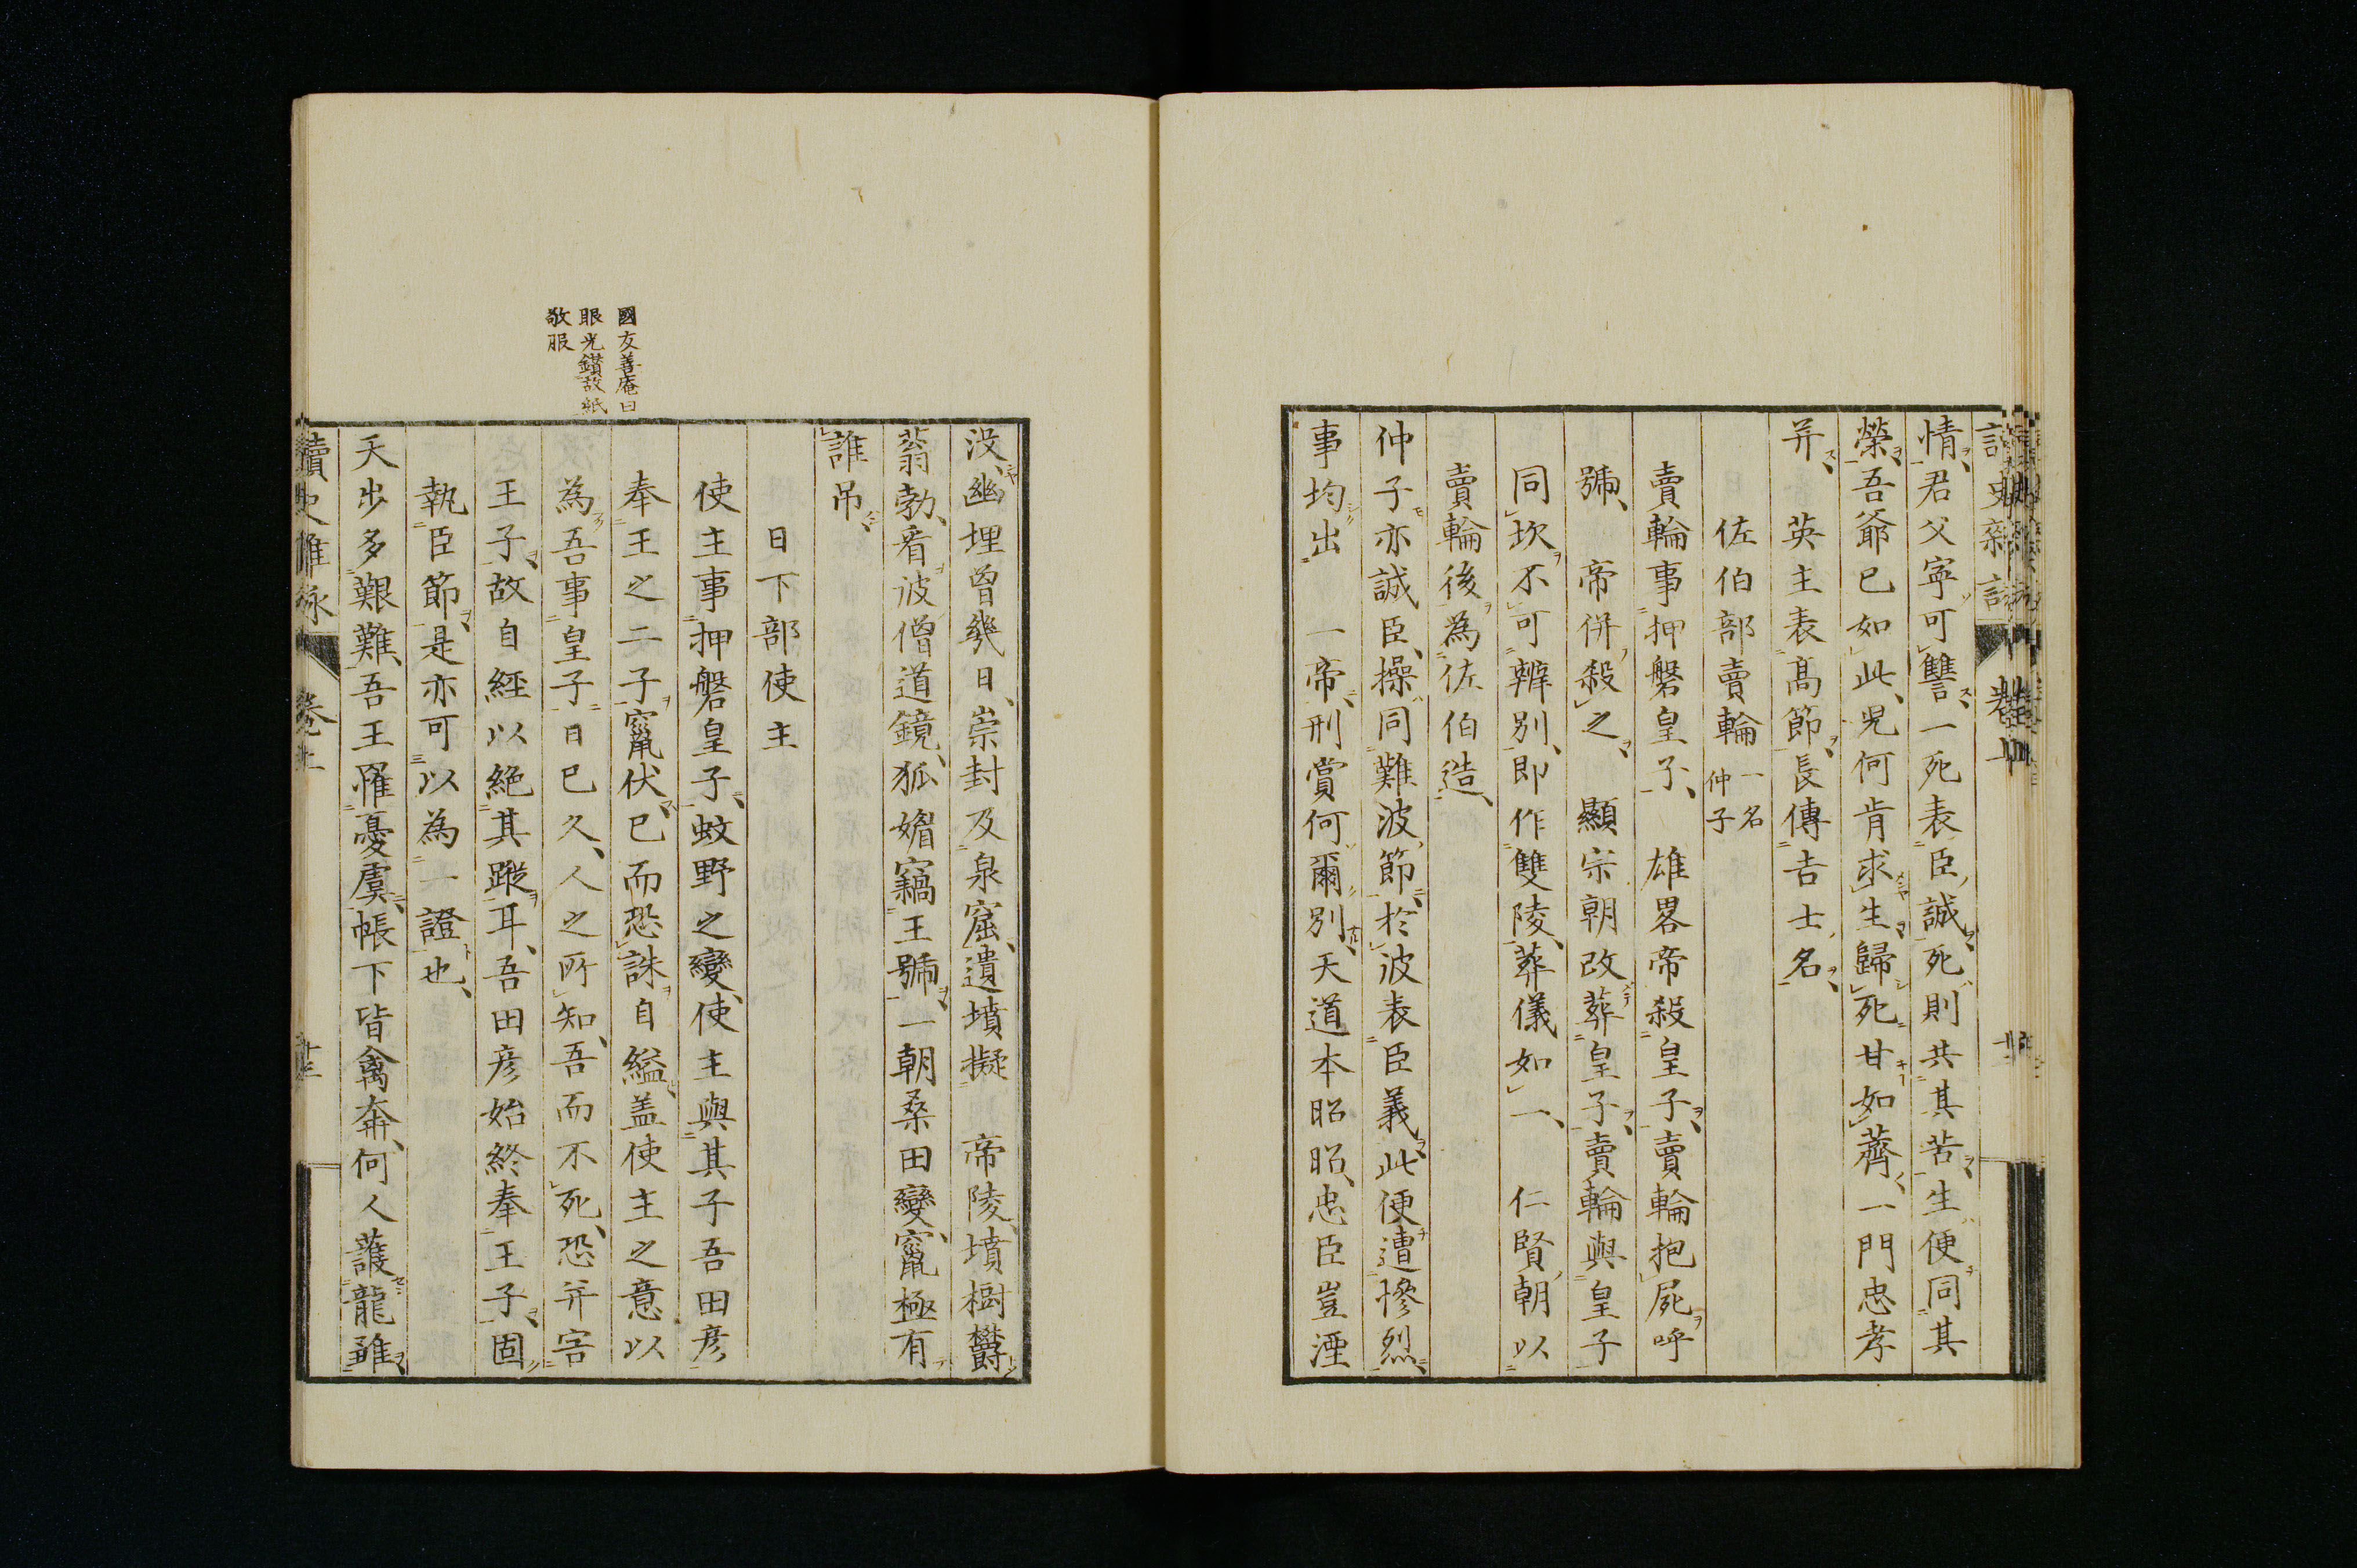 情君父寧可讐一死表臣誠死則共其苦生便同其
榮吾爺已如此児何肯求生歸死甘如薺一門忠孝
并英主表高節長傳吉士名
佐伯部賣輪 一名仲子
賣輪事押磐皇子雄畧帝殺皇子賣輪抱屍呼
號帝併殺之顯宗朝改葬皇子賣輪與皇子
同坎不可辨別即作雙陵葬儀如一仁賢朝以
賣輪後為佐伯造
仲子亦誠臣操同難波節於波表臣義此便遭慘烈
事均出一帝刑賞何爾別天道本昭昭忠臣豈湮
没幽埋曾幾日崇封及泉窟遺墳擬帝陵墳樹欝
蓊勃看波僧道鏡狐媚竊王號一朝桑田變竄極有
誰吊
日下部使主
使主事押磐皇子蚊野之變使主與其子吾田彦
奉王之二子竄伏已而恐誅自縊盖使主之意以
為吾事皇子日已久人之所知吾而不死恐并害
王子故自經以絶其蹤耳吾田彦始終奉王子固
執臣節是亦可以為一證也
天步多艱難吾王罹憂虞帳下皆禽奔何人護龍雖
國友善庵曰
眼光鑚故紙
敬服
讀史雜詠 卷上 十三